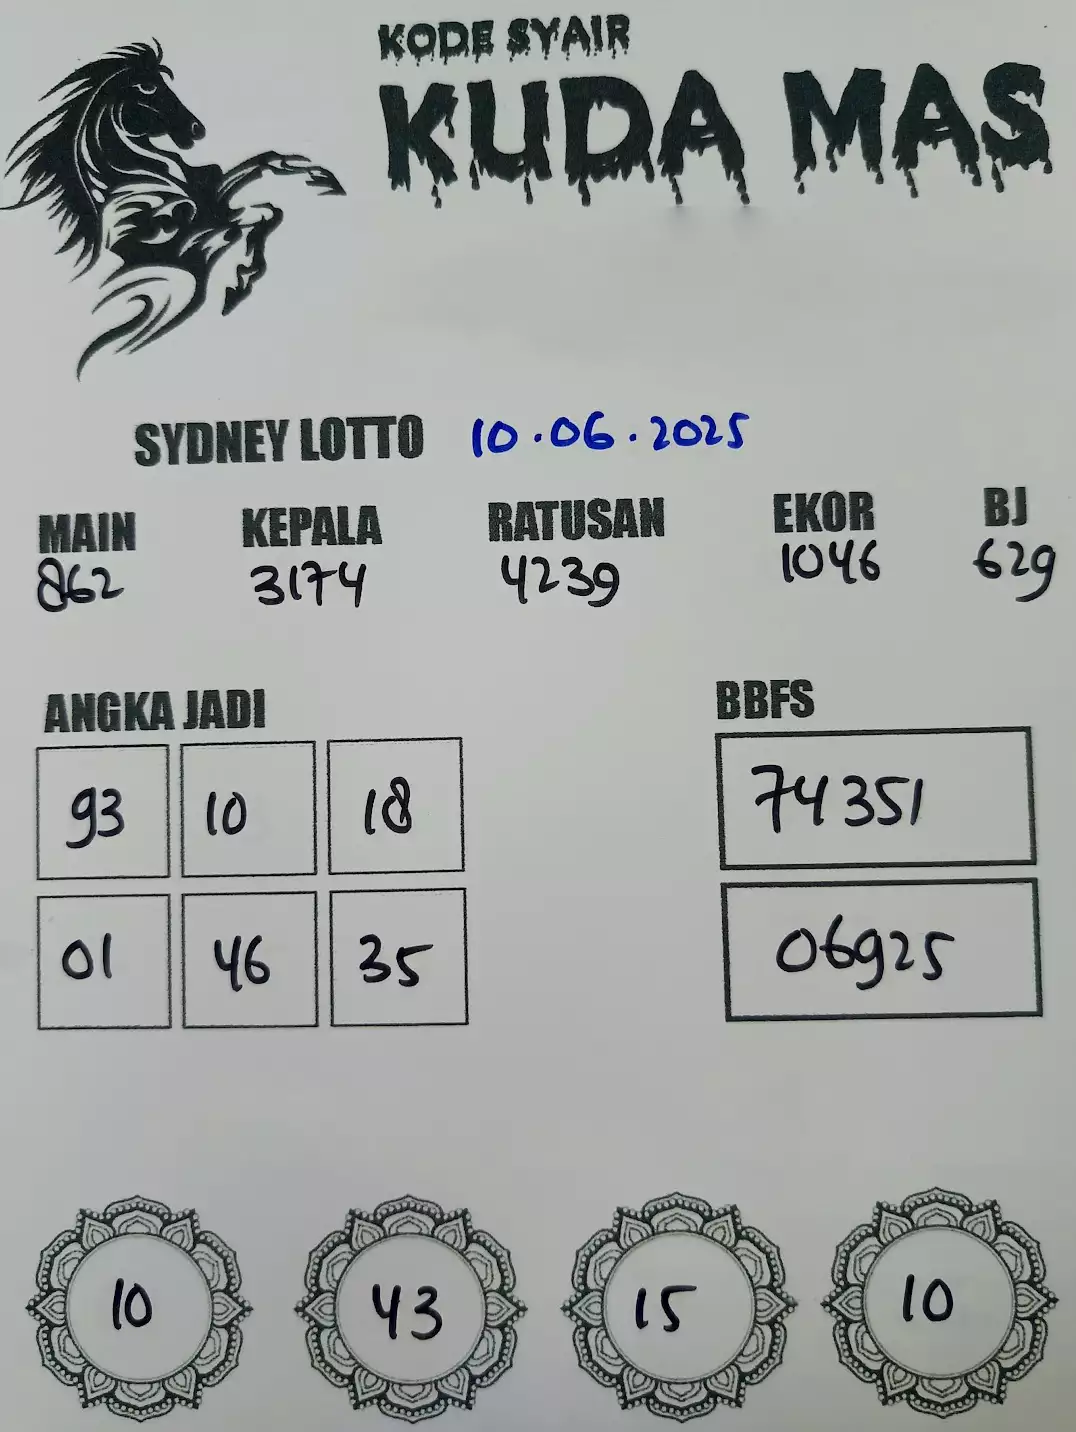 KODE SYAIR
KUDA MAS
SYDNEY LOTTO 10.06.2025
MAIN KEPALA RATUSAN EKOR BJ
862 3174 4239 1046 629
ANGKA JADI BBFS
93 10 18 74351
01 46 35 06925
10 43 15 10